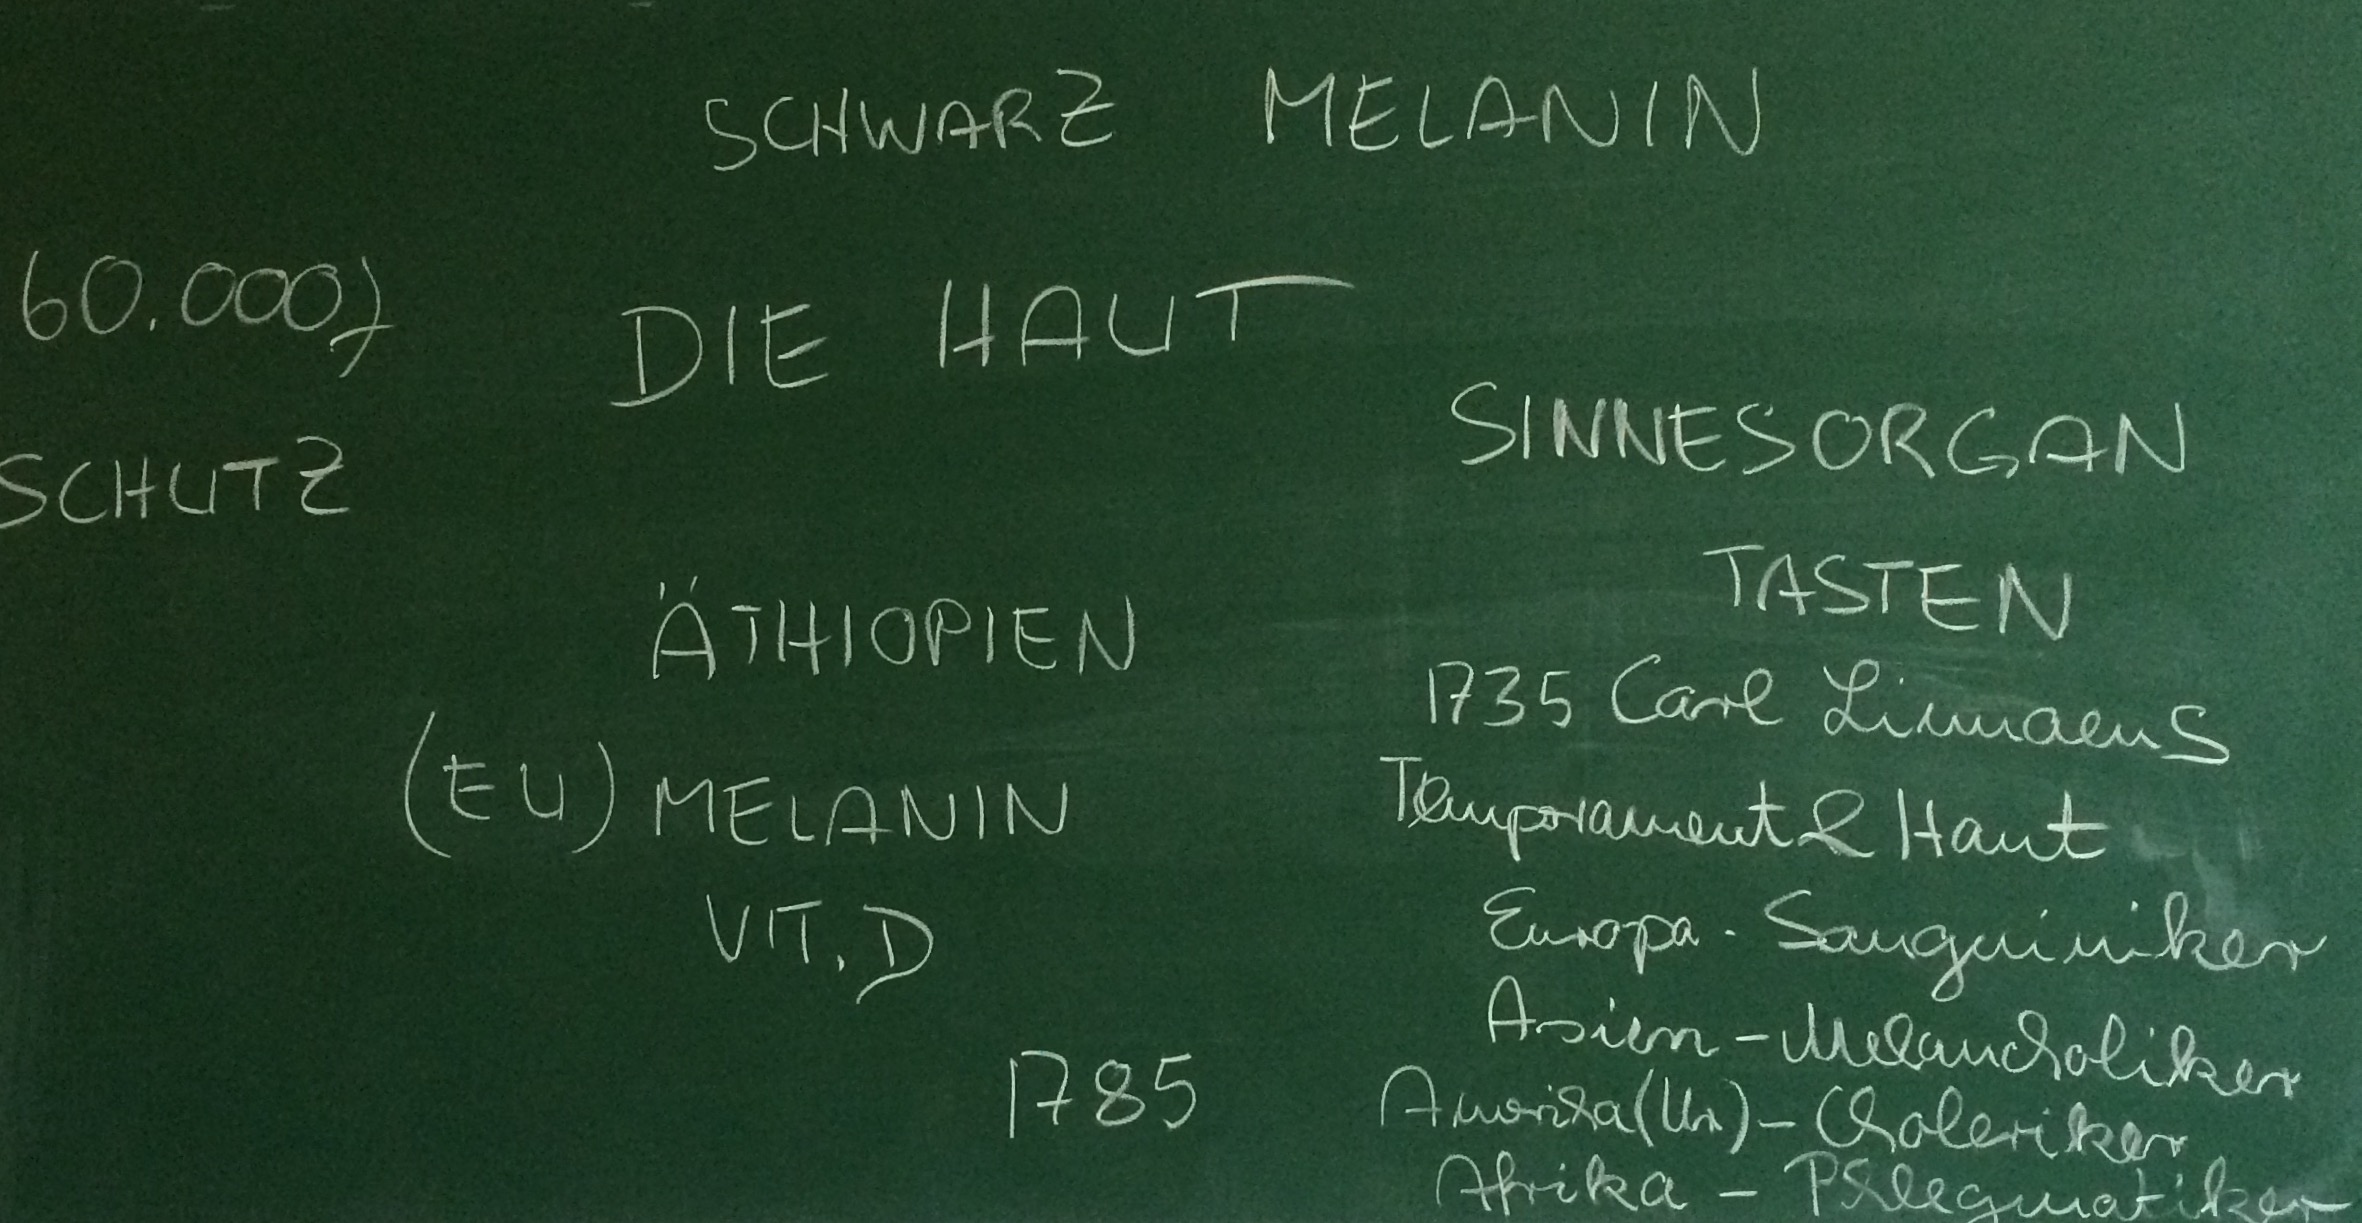 SCHWARZ MELANIN
60.000J
DIE HAUT
SCHUTZ
SINNESORGAN
TASTEN
ÄTHIOPIEN
(EU) MELANIN
VIT. D
1785
1735 Carl Linnaeus
Temporament & Haut
Europa - Sanguiniker
Asien - Melancholiker
Amerika (Ur) - Choleriker
Afrika - Phlegmatiker